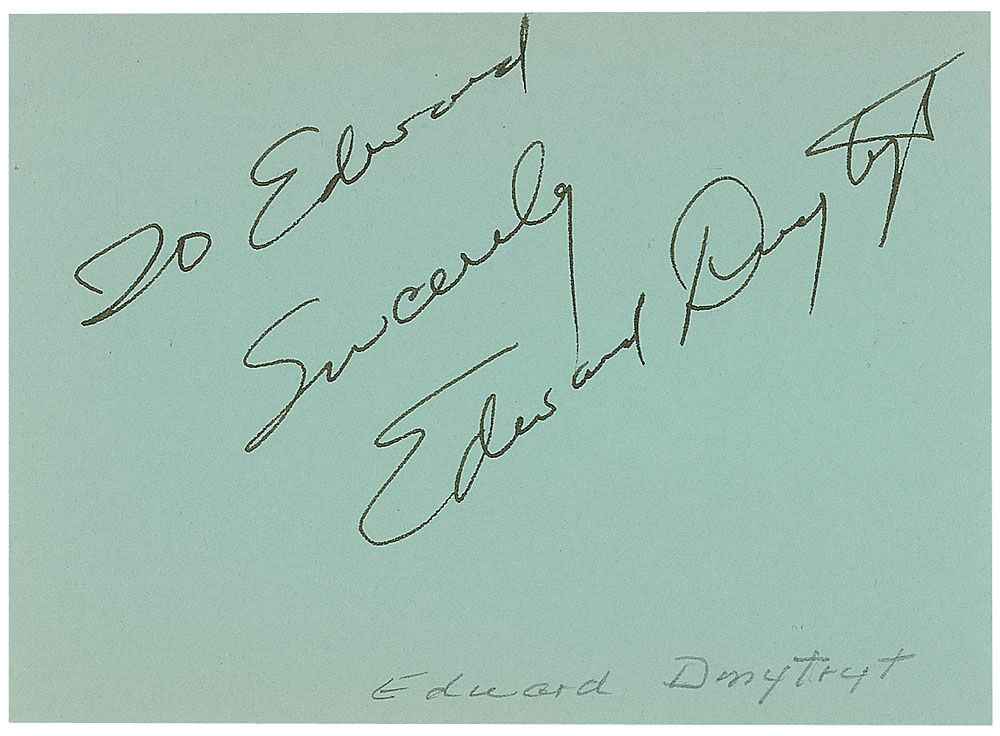 To Edward
Sincerely
Edward Dmytryk
Edward Dmytryt